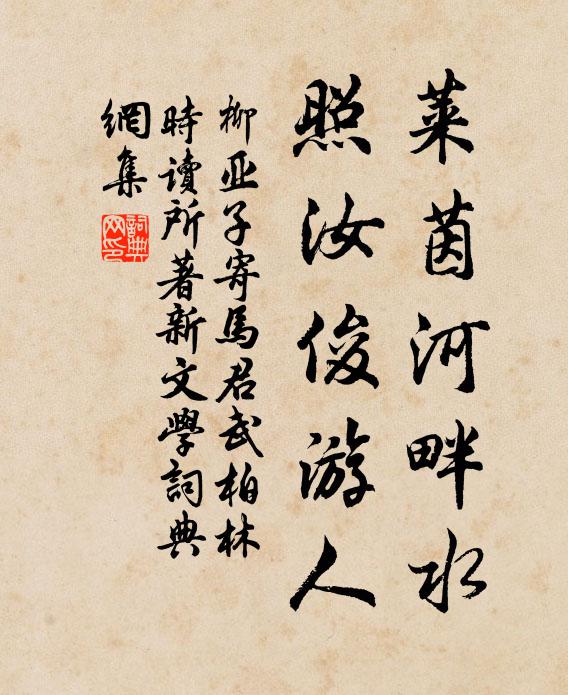 萊茵河畔水
照汝俊游人
柳亚子寄馬君武柏林
時讀所著新文學詞典
網集
詞典網印